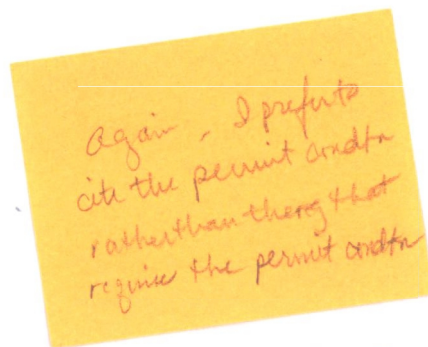 Again, I prefer to
cite the permit condtn
rather than the reg that
require the permit condtn